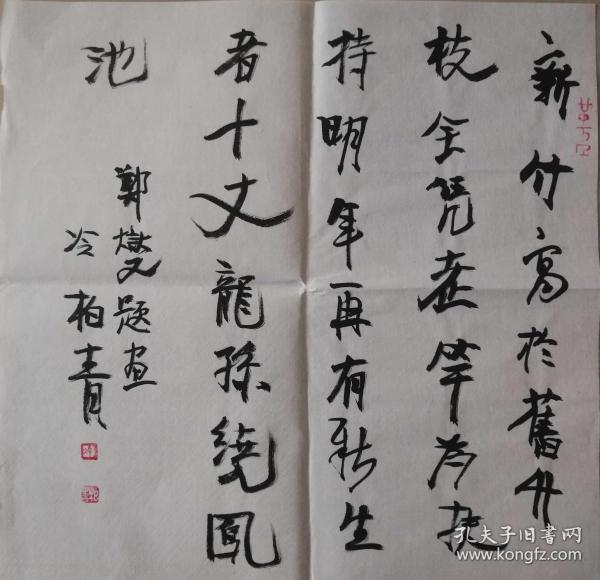 新竹高於舊竹
枝全凭老竿为扶
持明年再有新生
者十丈龍孫繞鳳
池
鄭燮题画
冷柏青
孔夫子旧书网
www.kongfz.com